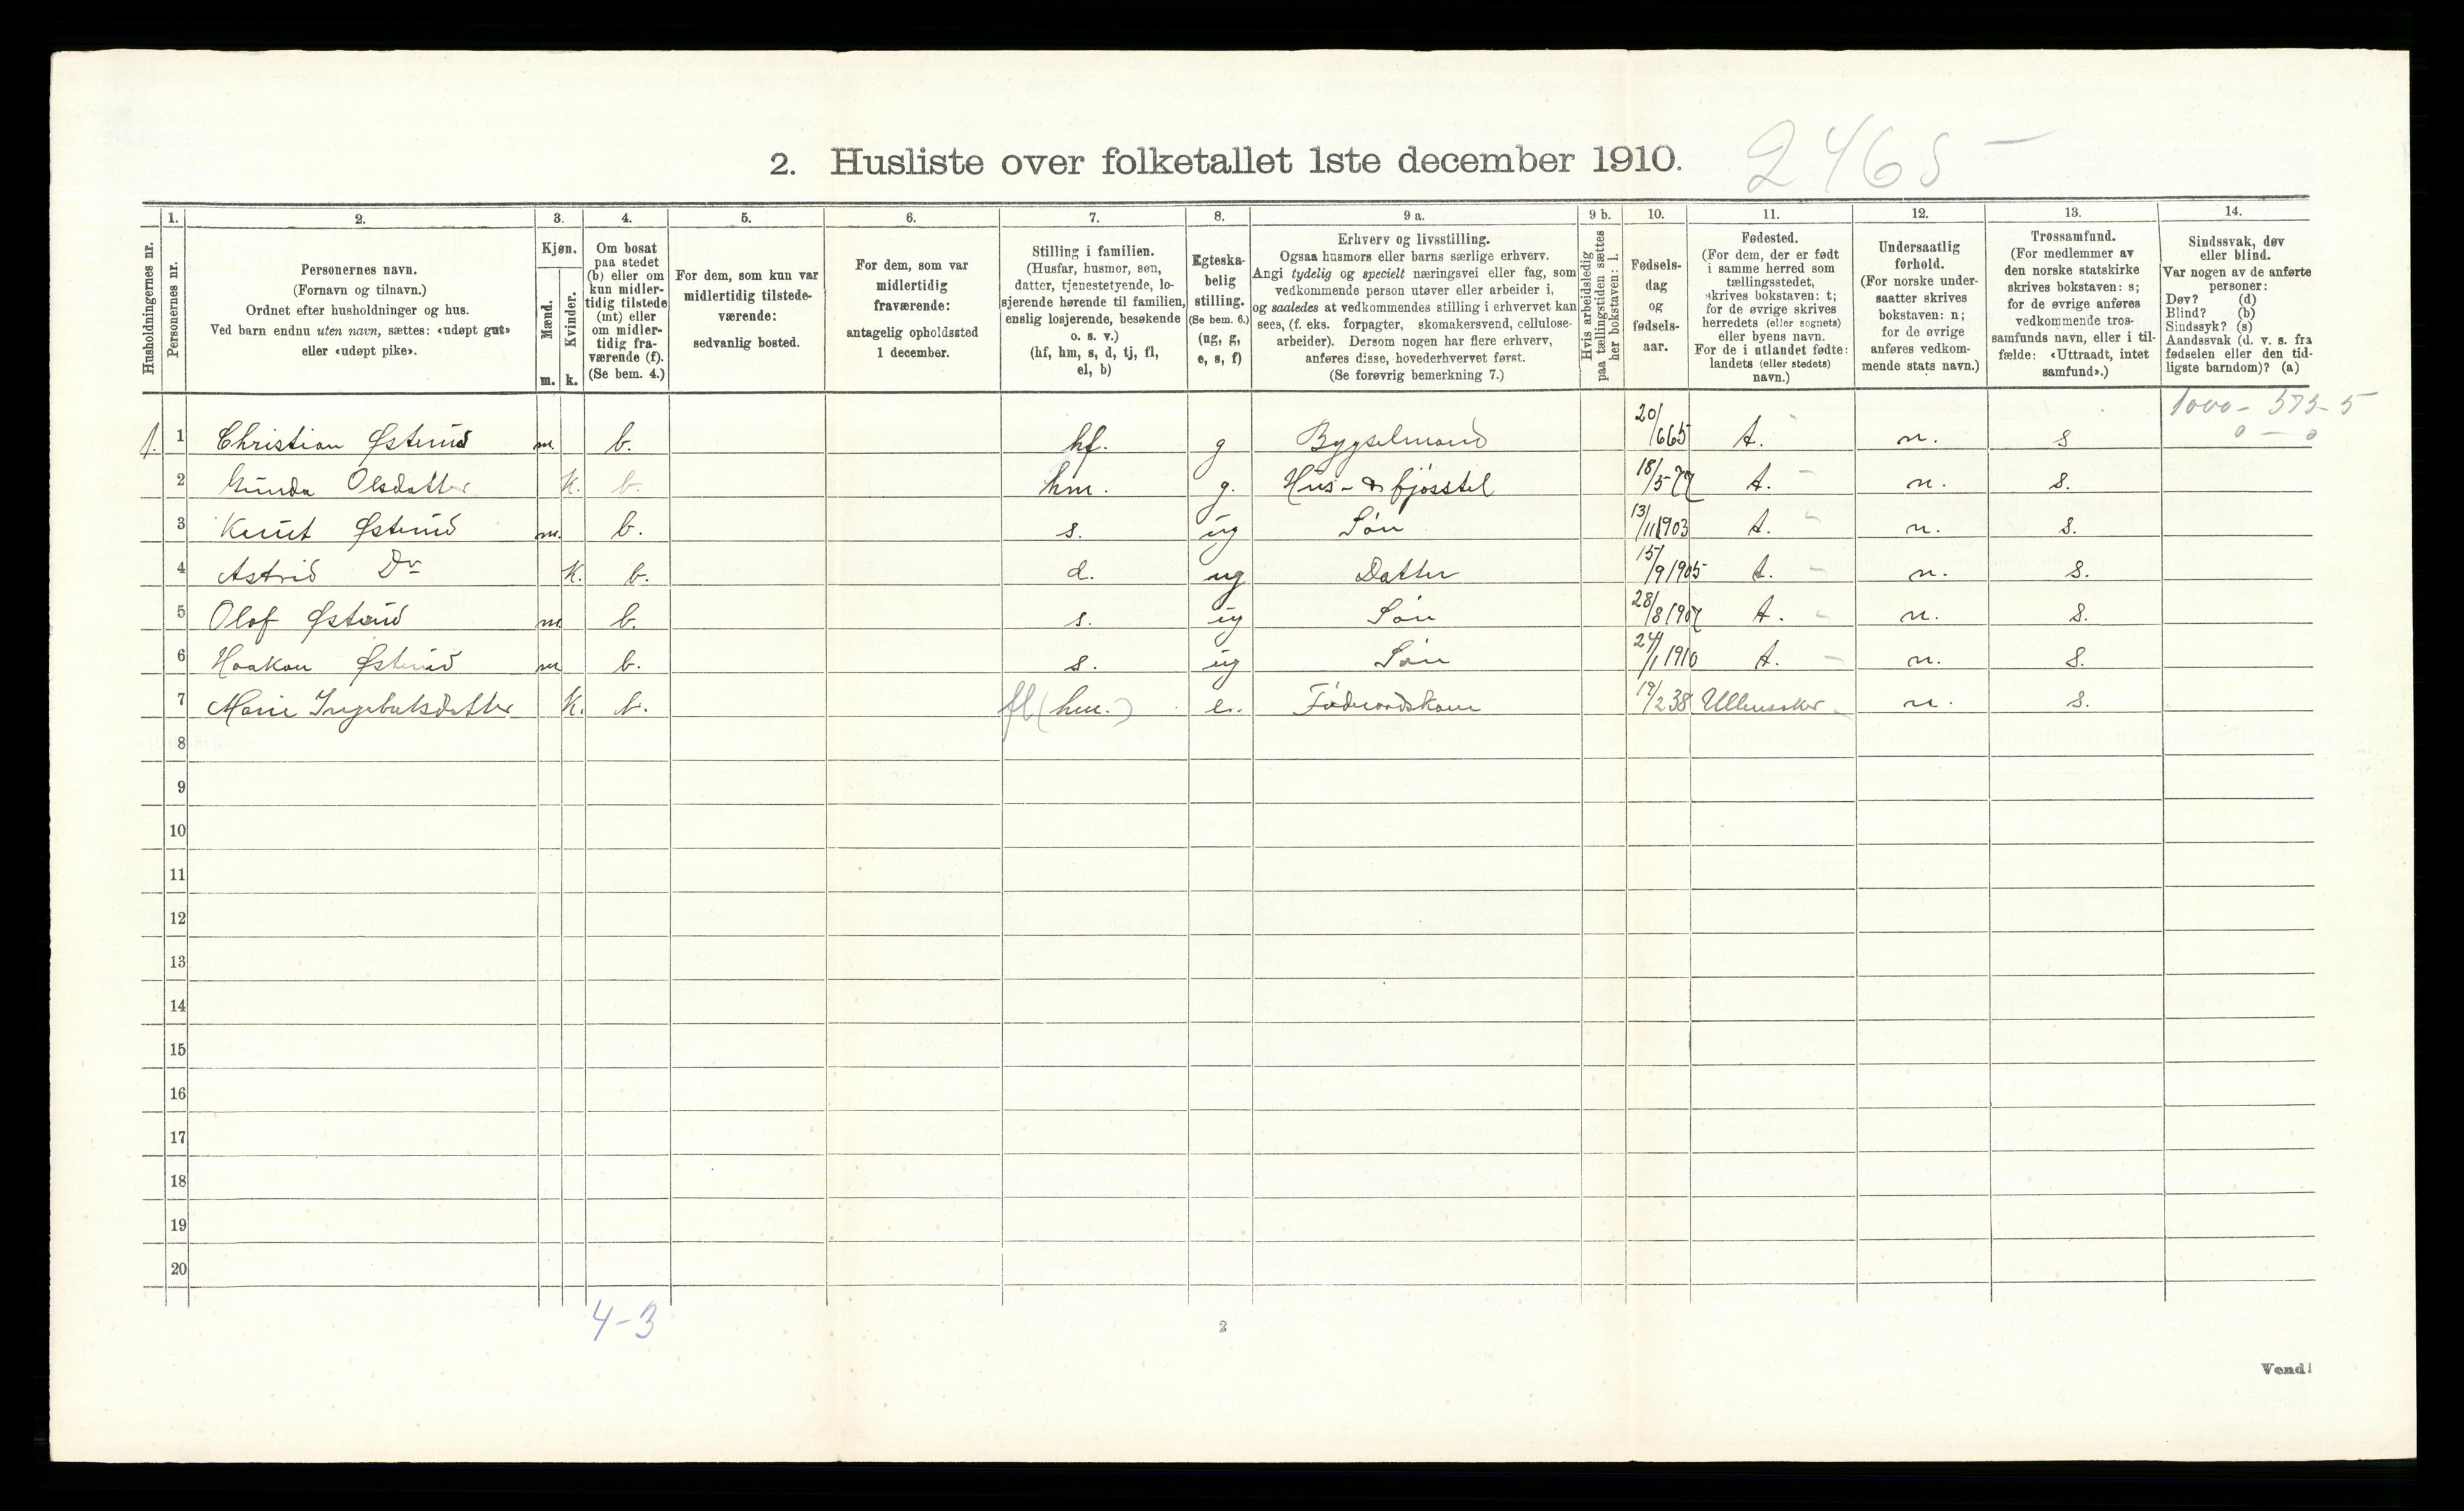 2. Husliste over folketallet 1ste december 1910. 2465 -
Husholdningernes nr.
1. Personernes nr.
2. Personernes navn.
(Fornavn og tilnavn.)
Ordnet efter husholdninger og hus.
Ved barn endnu uten navn, sættes: «udøpt gut»
eller «udøpt pike».
3. Kjøn.
Mænd. m.
Kvinder. k.
4. Om bosat
paa stedet
(b) eller om
kun midler-
tidig tilstede
(mt) eller
om midler-
tidig fra-
værende (f).
(Se bem. 4.)
5. For dem, som kun var
midlertidig tilstede-
værende:
sedvanlig bosted.
6. For dem, som var
midlertidig
fraværende:
antagelig opholdssted
1 december.
7. Stilling i familien.
(Husfar, husmor, søn,
datter, tjenestetyende, lo-
sjerende hørende til familien,
enslig losjerende, besøkende
o. s. v.)
(hf, hm, s, d, tj, fl,
el, b)
8. Egteska-
belig
stilling.
(Se bem. 6.)
(ug, g,
e, s, f)
9 a. Erhverv og livsstilling.
Ogsaa husmors eller barns særlige erhverv.
Angi tydelig og specielt næringsvei eller fag, som
vedkommende person utøver eller arbeider i,
og saaledes at vedkommendes stilling i erhvervet kan
sees, (f. eks. forpagter, skomakersvend, cellulose-
arbeider). Dersom nogen har flere erhverv,
anføres disse, hovederhvervet først.
(Se forøvrig bemerkning 7.)
9 b. Hvis arbeidsledig
paa tællingstiden sættes
her bokstaven: l.
10. Fødsels-
dag
og
fødsels-
aar.
11. Fødested.
(For dem, der er født
i samme herred som
tællingsstedet,
skrives bokstaven: t;
for de øvrige skrives
herredets (eller sognets)
eller byens navn.
For de i utlandet fødte:
landets (eller stedets)
navn.)
12. Undersaatlig
forhold.
(For norske under-
saatter skrives
bokstaven: n;
for de øvrige
anføres vedkom-
mende stats navn.)
13. Trossamfund.
(For medlemmer av
den norske statskirke
skrives bokstaven: s;
for de øvrige anføres
vedkommende tros-
samfunds navn, eller i til-
fælde: «Uttraadt, intet
samfund».)
14. Sindssvak, døv
eller blind.
Var nogen av de anførte
personer:
Døv? (d)
Blind? (b)
Sindssyk? (s)
Aandssvak (d. v. s. fra
fødselen eller den tid-
ligste barndom)? (a)
1000 - 575 - 5
0 - 0
1. 1 Christian Østerud m. b. hf. g Bygselmand 20/6 65 t. n. s
2 Gunda Olsdatter K. b. hm. g. Hus- & fjøsstel 18/5-77 t. n. s.
3 Knut Østerud m. b. s. ug Søn 13/11 1903 t. n. s.
4 Astrid Do K. b. d. ug Datter 15/9 1905 t. n. s.
5 Olof Østerud m b. s. ug Søn 28/8 1907 t. n. s.
6 Haakon Østerud m b. s. ug Søn 24/1 1910 t. n. s.
7 Marie Ingebretsdatter K. b. fl (hm.) e. Føderaadskone 19/2 38 Ullensaker n. s.
8
9
10
11
12
13
14
15
16
17
18
19
20
4-3
2
Vend!